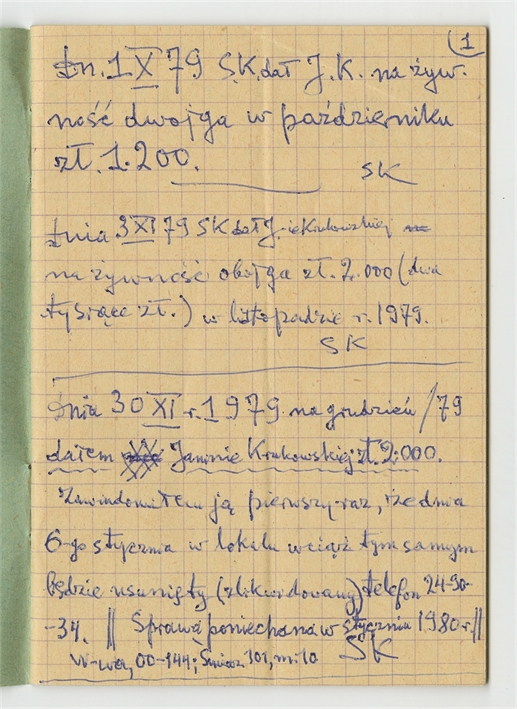 1
Dn. 1 X 79 S.K. dał J. K. na żyw-
ność dwojga w październiku
zł. 1.200.
SK
Dnia 3 XI 79 SK dał J-ie Krakowskiej
na żywność obojga zł. 2.000 (dwa
tysiące zł.) w listopadzie r. 1979.
SK
Dnia 30 XI r. 1979 na grudzień /79
dałem Janinie Krakowskiej zł. 2.000.
Zawiadomiłem ją pierwszy raz, że dnia
6-go stycznia w lokalu wciąż tym samym
będzie usunięty (zlikwidowany) telefon 24-30-
-34. || Sprawa poniechana w styczniu 1980 r ||
SK
W-wa, 00-144; 101, m. 10